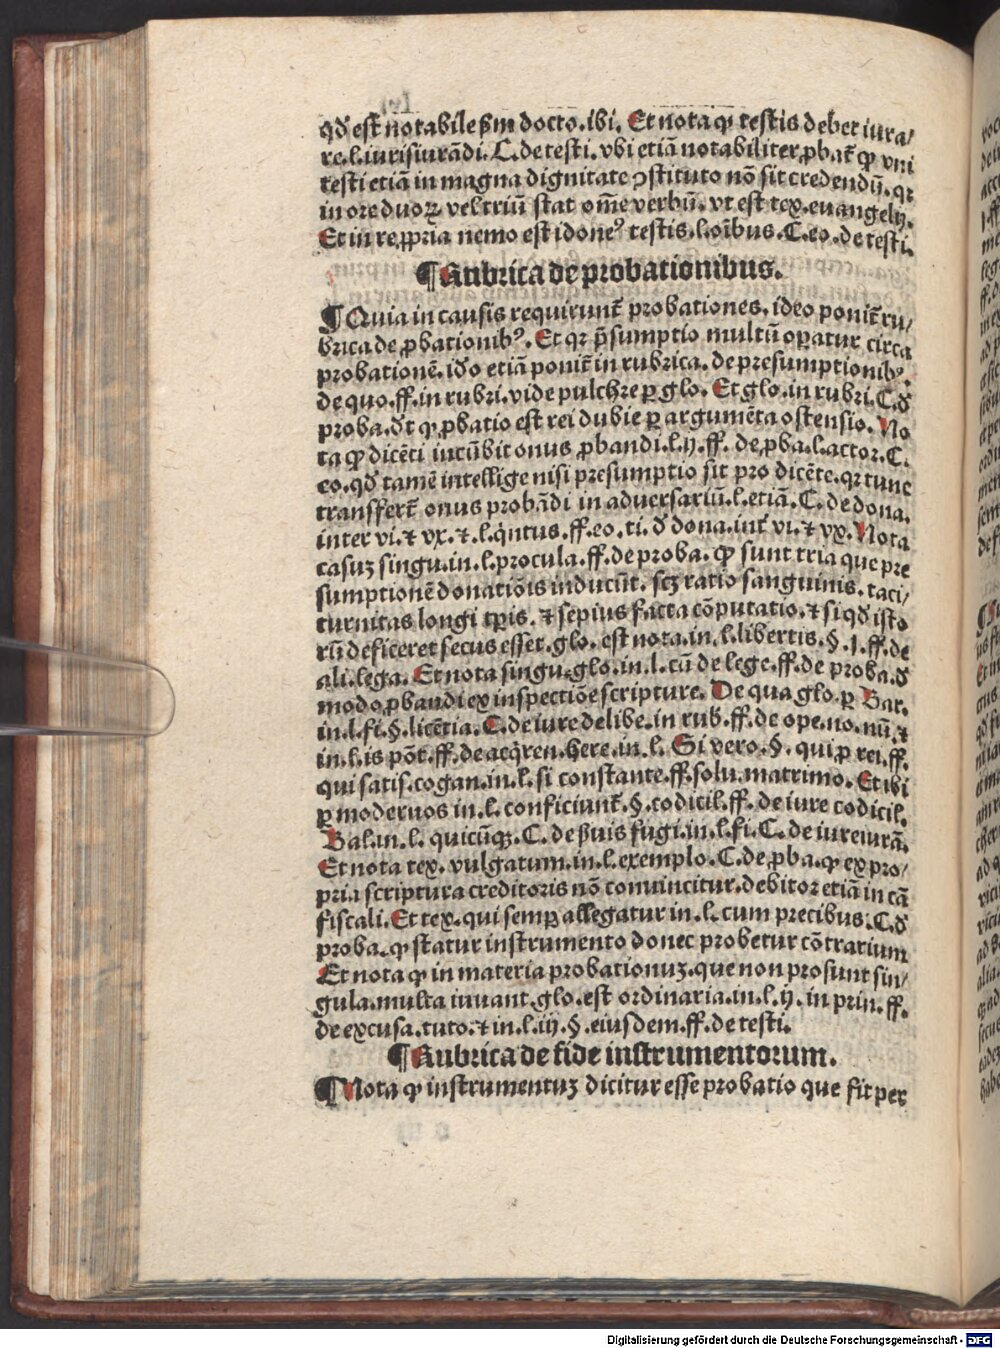 qđ est notabile ẞm docto.ibi. Et nota ꝙ testis debet iura/
re.l.iurisiurãdi.C.de testi.vbi etiã notabiliter ꝓbat̃ ꝙ vni
testi etiã in magna dignitate ꝯstituto nõ sit credendũ.qꝛ
in ore duoꝝ vel triũ stat om̃e verbũ.vt est tex.euangelij.
Et in re ꝓpria nemo est idone⁹ testis.l.oĩbus.C.eo.de testi.
¶Rubrica de probationibus.
¶Quia in causis requirunt̃ probationes.ideo ponit̃ ru/
brica de ꝓbationib⁹.Et qꝛ p̃sumptio multũ oꝑatur circa
probationẽ.iđo etiã ponit̃ in rubrica.de presumptionib⁹.
de quo.ff.in rubri.vide pulchre ꝑ glo. Et glo.in rubri.C.đ
proba.đt ꝙ ꝓbatio est rei dubie ꝑ argumẽta ostensio. No
ta ꝙ dicẽti incũbit onus ꝓbandi.l.ij.ff. de ꝓba.l.actor.C.
eo.qđ tamẽ intellige nisi presumptio sit pro dicẽte.qꝛ tunc
transfert̃ onus probãdi in aduersariũ.l.etiã.C.de dona.
inter vi.⁊ vx.⁊.l.q̃ntus.ff.eo.ti.đ dona.int̃ vi.⁊ vx.Nota
casuꝫ singu.in.l.procula.ff.de proba.ꝙ sunt tria que pre
sumptionẽ donatiõis inducũt. scꝫ ratio sanguinis.taci/
turnitas longi tꝑis.⁊ sepius facta cõputatio.⁊ si qđ isto
rũ deficeret secus esset.glo. est nota.in.l.libertis.§.j.ff.de
ali.lega. Et nota singu.glo.in.l.cũ de lege.ff.de proba.đ
modo ꝓbandi ex inspectiõe scripture. De qua glo.ꝑ Bar.
in.l.fi.§.licẽtia.C.de iure delibe.in rub.ff.de ope.no.nũ.⁊
in.l.is põt.ff.de acq̃ren.here.in.l. Si vero.§.qui ꝓ rei.ff.
qui satis.cogan.in.l.si constante.ff.solu.matrimo.Et ibi
ꝑ modernos in.l.conficiunt̃.§.codicil.ff.de iure codicil.
Bal.in.l. quicũqꝫ.C.de ẞuis fugi.in.l.fi.C.de iureiurã.
Et nota tex. vulgatum.in.l.exemplo.C.de ꝓba.ꝙ ex pro/
pria scriptura creditoris nõ conuincitur.debitor etiã in cã
fiscali.Et tex.qui semꝑ allegatur in.l.cum precibus.C.đ
proba.ꝙ statur instrumento donec probetur cõtrarium
Et nota ꝙ in materia probationuꝫ.que non prosunt sin/
gula.multa iuuant.glo.est ordinaria.in.l.ij.in prin.ff.
de excusa.tuto.⁊ in.l.iij.§.eiusdem.ff.de testi.
¶Rubrica de fide instrumentorum.
¶Nota ꝙ instrumentuꝫ dicitur esse probatio que fit per
Digitalisierung gefördert durch die Deutsche Forschungsgemeinschaft - DFG